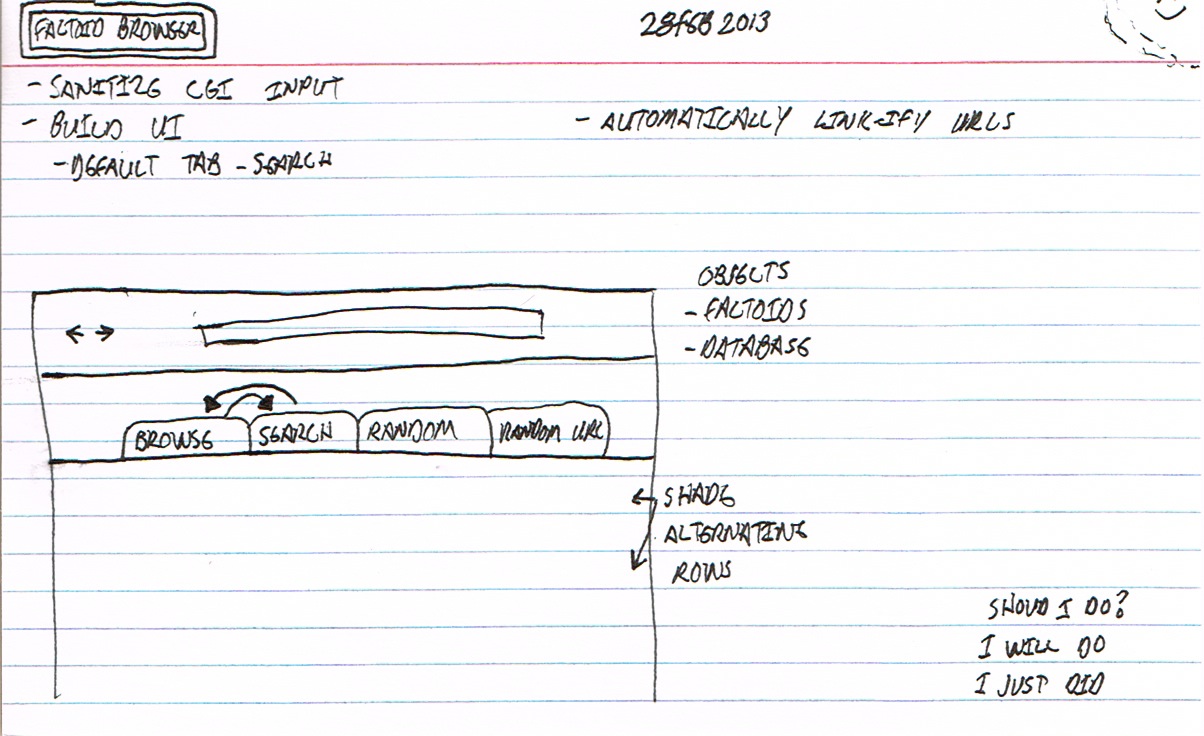 FACTOID BROWSER
28FEB 2013
- SANITIZE CGI INPUT
- BUILD UI
- AUTOMATICALLY LINK-IFY URLS
- DEFAULT TAB - SEARCH
OBJECTS
- FACTOIDS
- DATABASE
BROWSE SEARCH RANDOM RANDOM URL
SHADE
ALTERNATING
ROWS
SHOUD I DO?
I WILL DO
I JUST DID